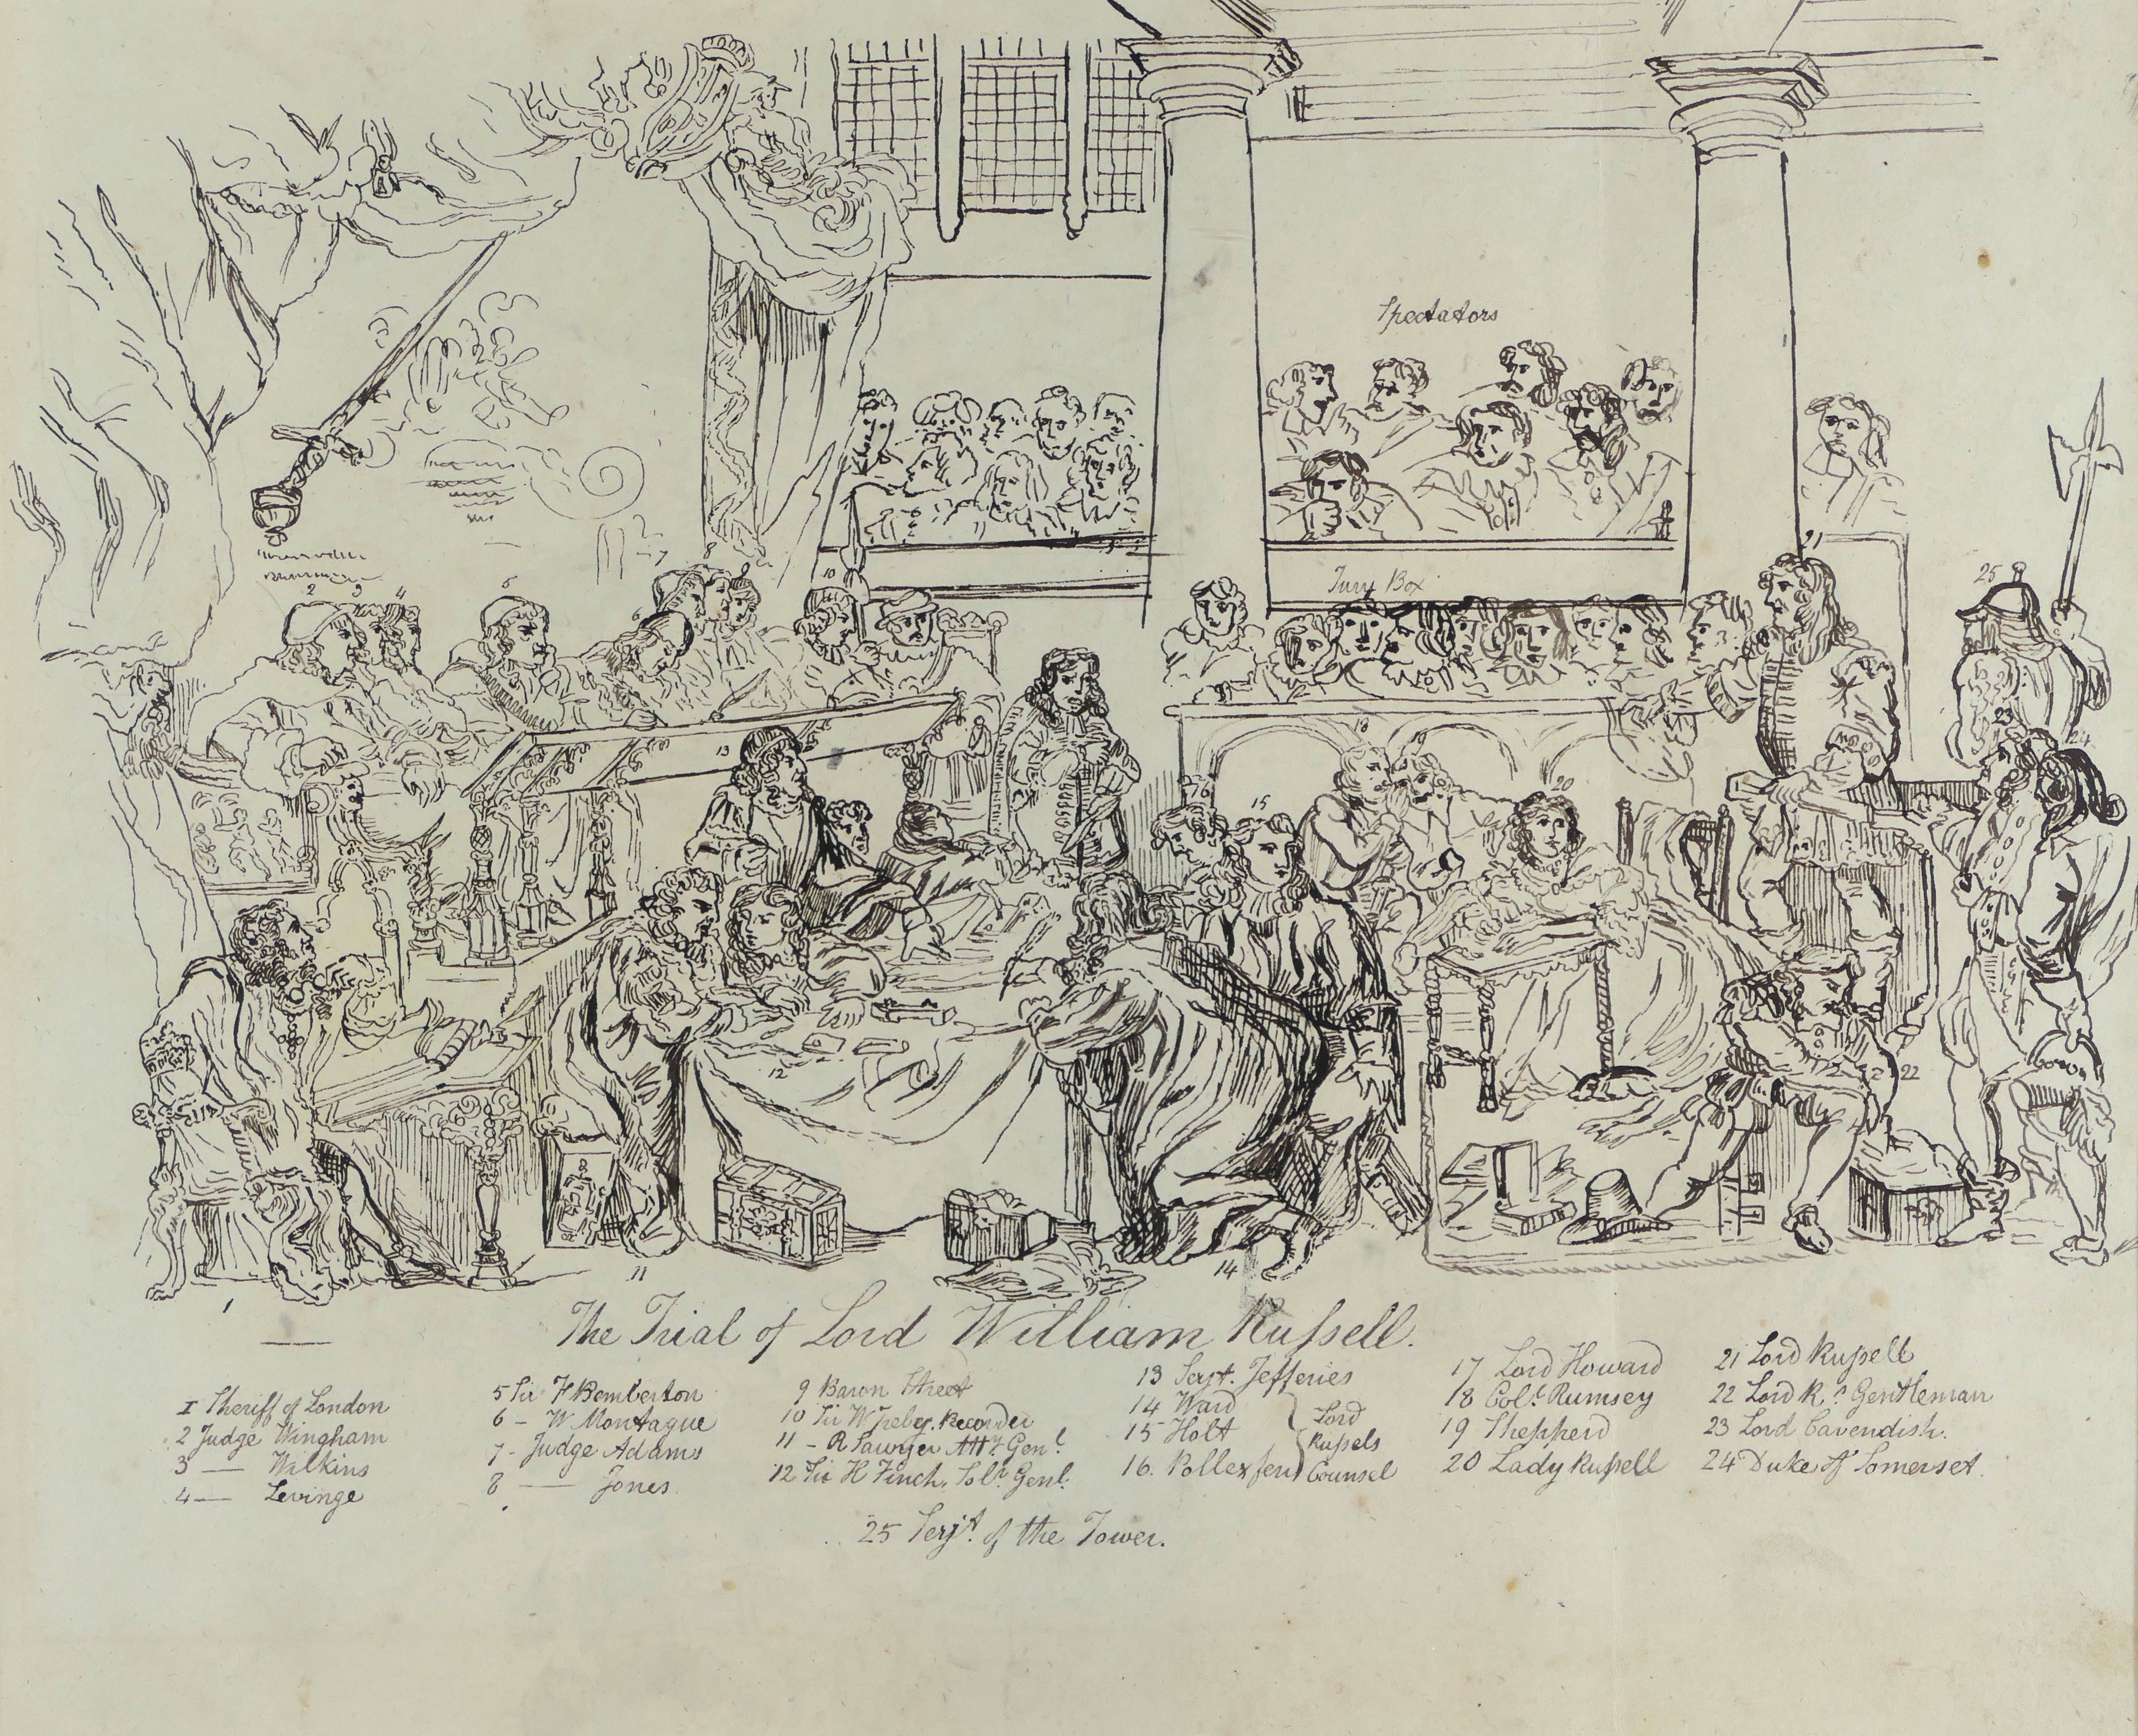 Spectators
Jury Box
2 3 4 5 6 8 9 10
21
25
13
18 19 20
16 15
23
24
12
22
1
11
14
The Trial of Lord William Rufsell.
1 Sheriff of London
2 Judge Wingham
3 — Wilkins
4 — Levinge
5 Sir F Pemberton
6 – W Montague
7 - Judge Adams
8 — Jones
9 Baron Street
10 Sir W Treby. Recorder
11 – R Sawyer Atty. Genl.
12 Sir H Finch. Solr. Genl.
13 Serjt. Jefferies
14 Ward
15 Holt
16. Pollexfen
Lord
Rufsels
Counsel
17 Lord Howard
18 Coll. Rumsey
19 Shepperd
20 Lady Rufsell
21 Lord Rufsell
22 Lord R.s Gentleman
23 Lord Cavendish.
24 Duke of Somerset.
25 Serjt. of the Tower.